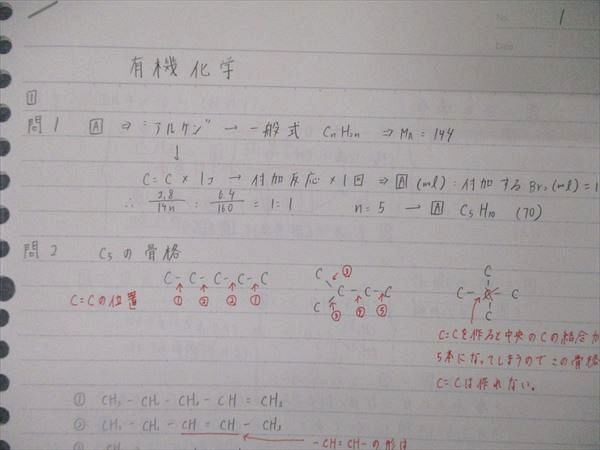 No.
1
Date
有機化学
1
問1 A ⇒ "アルケン" → 一般式 CnH2n ⇒ MA = 14n
↓
C=C × 1コ → 付加反応 × 1回 ⇒ A (mol) : 付加する Br2 (mol) = 1
∴ 2.8/14n : 6.4/160 = 1:1 n=5 → A C5H10 (70)
問2 C5の骨格
C-C-C-C-C
① ② ② ①
C=Cの位置
C C C-C-C
③ ③ ④ ⑤
C C-C C C
C=Cを作ると中央のCの結合が
5本になってしまうのでこの骨格
C=Cは作れない。
① CH3-CH2-CH2-CH=CH2
② CH3-CH2-CH=CH-CH3
-CH=CH-の形は